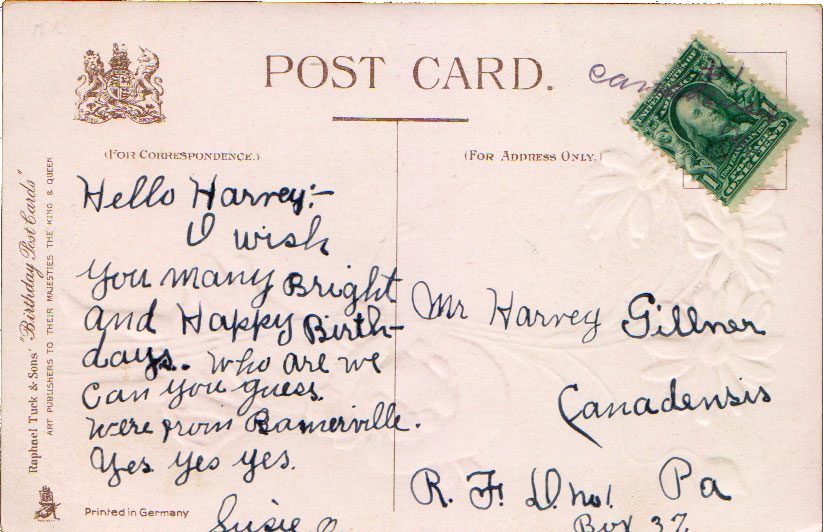 POST CARD.
(FOR CORRESPONDENCE.)
(FOR ADDRESS ONLY.)
Raphael Tuck & Sons' "Birthday Post Cards"
ART PUBLISHERS TO THEIR MAJESTIES THE KING & QUEEN
Hello Harvey:-
I wish
you many Bright
and Happy Birth-
days.. who are we
Can you guess.
were from Bamerville.
Yes yes yes.
Susie
Printed in Germany
Mr Harvey Gillner
Canadensis
R. F. D. no 1. Pa
Box 37
ONE CENT